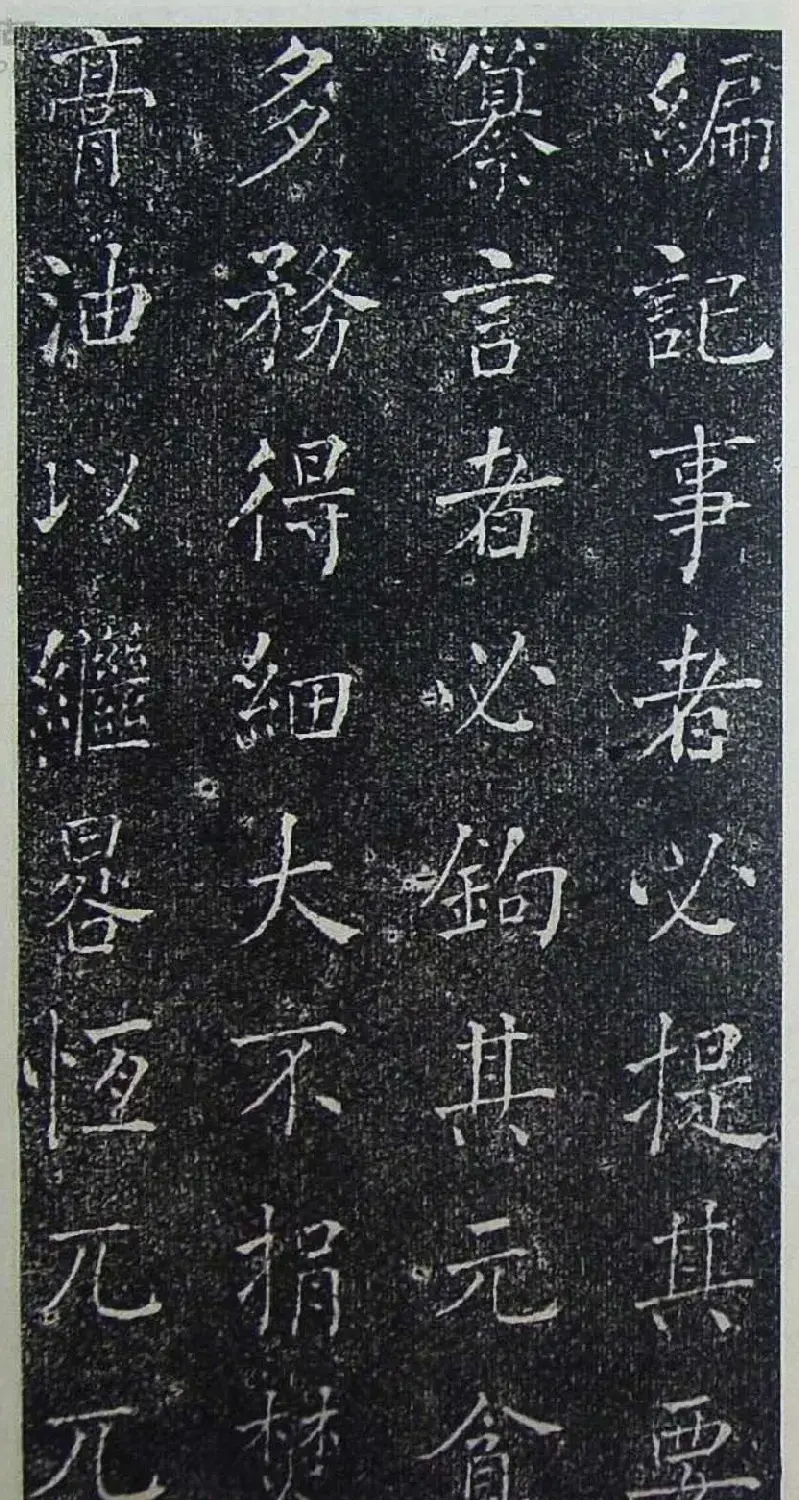 編記事者必提其要
纂言者必鉤其元貪
多務得細大不捐焚
膏油以繼晷恆兀兀